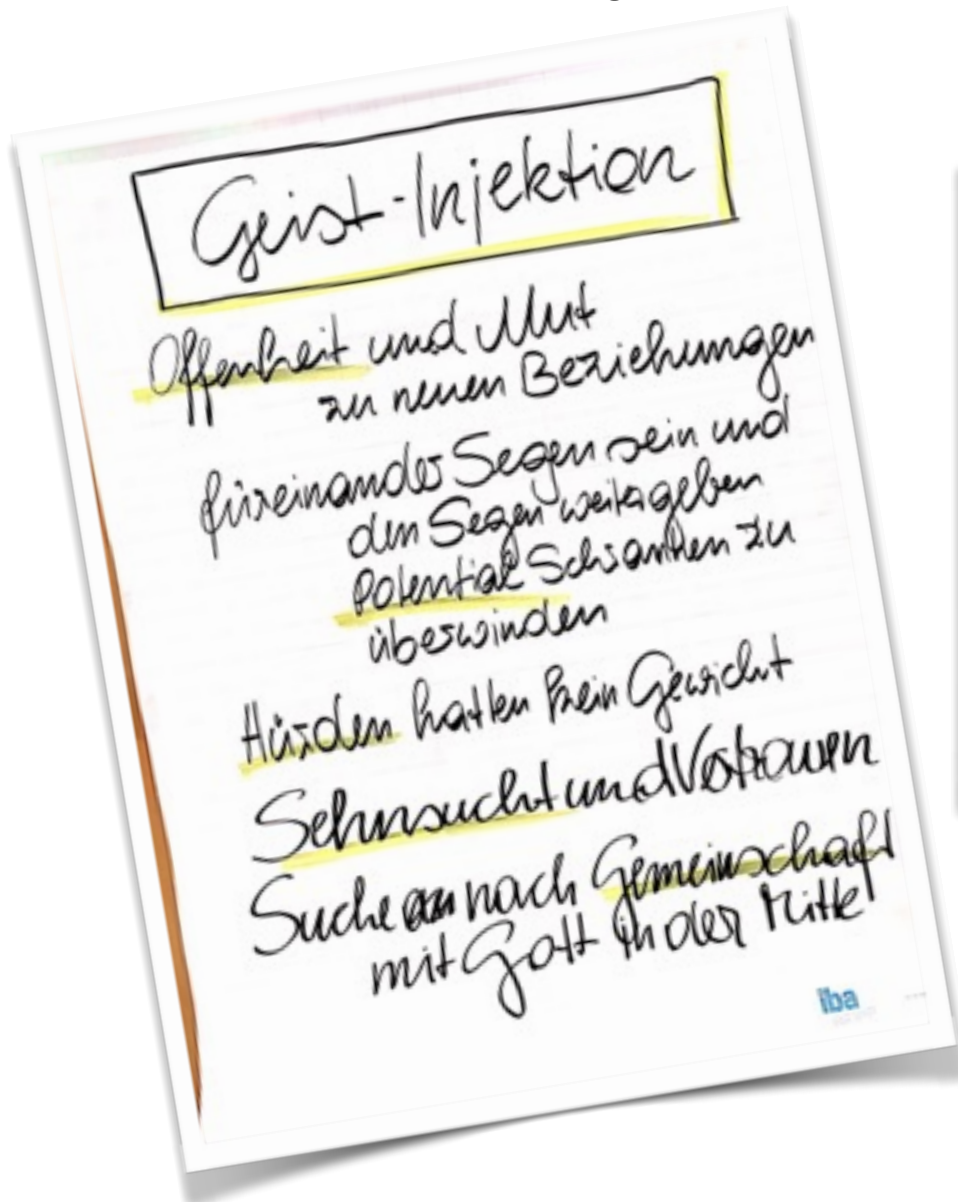 Geist-Injektion
Offenheit und Mut
zu neuen Beziehungen
füreinander Segen sein und
den Segen weitergeben
Potential Schranken zu
überwinden
Hürden hatten kein Gewicht
Sehnsucht und Vertrauen
Suche nach Gemeinschaft
mit Gott in der Mitte
iba